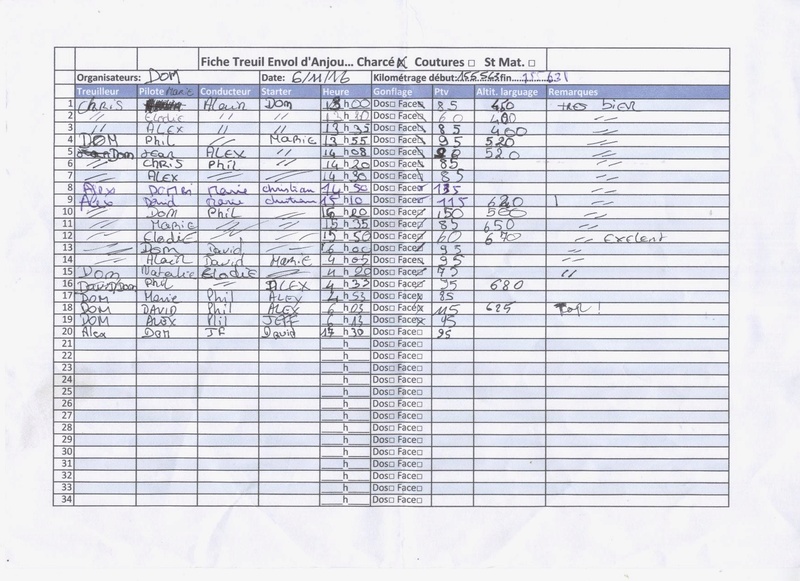 Fiche Treuil Envol d'Anjou... Charcé☒ Coutures □ St Mat. □
Organisateurs: DOM Date: 6/11/16 Kilométrage début: 155563 fin...155631
Treuilleur Pilote Marie Conducteur Starter Heure Gonflage Ptv Altit. larguage Remarques
1 CHRIS Alain DOM h00 Dos□ Face☒ 85 très bien
2 // Elodie // // h Dos□ Face☒ 60 400 //
3 // ALEX // // 13 h 35 Dos□ Face☒ 85 400 //
4 DOM Phil // MARIE 13 h 55 Dos□ Face☒ 95 520 //
5 Jean ALEX // 14 h 08 Dos□ Face☒ 520 //
6 // CHRIS Phil // 14 h 20 Dos□ Face☒ 85 //
7 // ALEX // // 14 h 30 Dos□ Face☒ 85 //
8 Alex Marie christian 14 h 50 Dos□ Face☒ 135
9 Alex David Marie christian 15 h 10 Dos□ Face☒ 115
10 // DOM Phil // h 20 Dos□ Face☒ 150 //
11 // MARIE // // 15 h 35 Dos□ Face☒ 85 650 //
12 // Elodie // // h 50 Dos□ Face☒ 60 670 // Exelent
13 // Dom David // h Dos□ Face☒ 95 //
14 // Alain David MARIE 4 h 05 Dos□ Face☒ 95 //
15 DOM Natalie Elodie // 4 h 20 Dos□ Face☒ 75 //
16 David/Dom Phil // ALEX 4 h 33 Dos□ Face☒ 95 680
17 DOM Marie Phil ALEX 4 h 53 Dos□ Face☒ 85
18 DOM DAVID Phil ALEX h 03 Dos□ Face☒ 115 625 Top !
19 DOM ALEX Phil JEFF h 13 Dos□ Face☒ 95
20 Alex Dom JF David 17 h 30 Dos□ Face□ 95
21 h Dos□ Face□
22 h Dos□ Face□
23 h Dos□ Face□
24 h Dos□ Face□
25 h Dos□ Face□
26 h Dos□ Face□
27 h Dos□ Face□
28 h Dos□ Face□
29 h Dos□ Face□
30 h Dos□ Face□
31 h Dos□ Face□
32 h Dos□ Face□
33 h Dos□ Face□
34 h Dos□ Face□